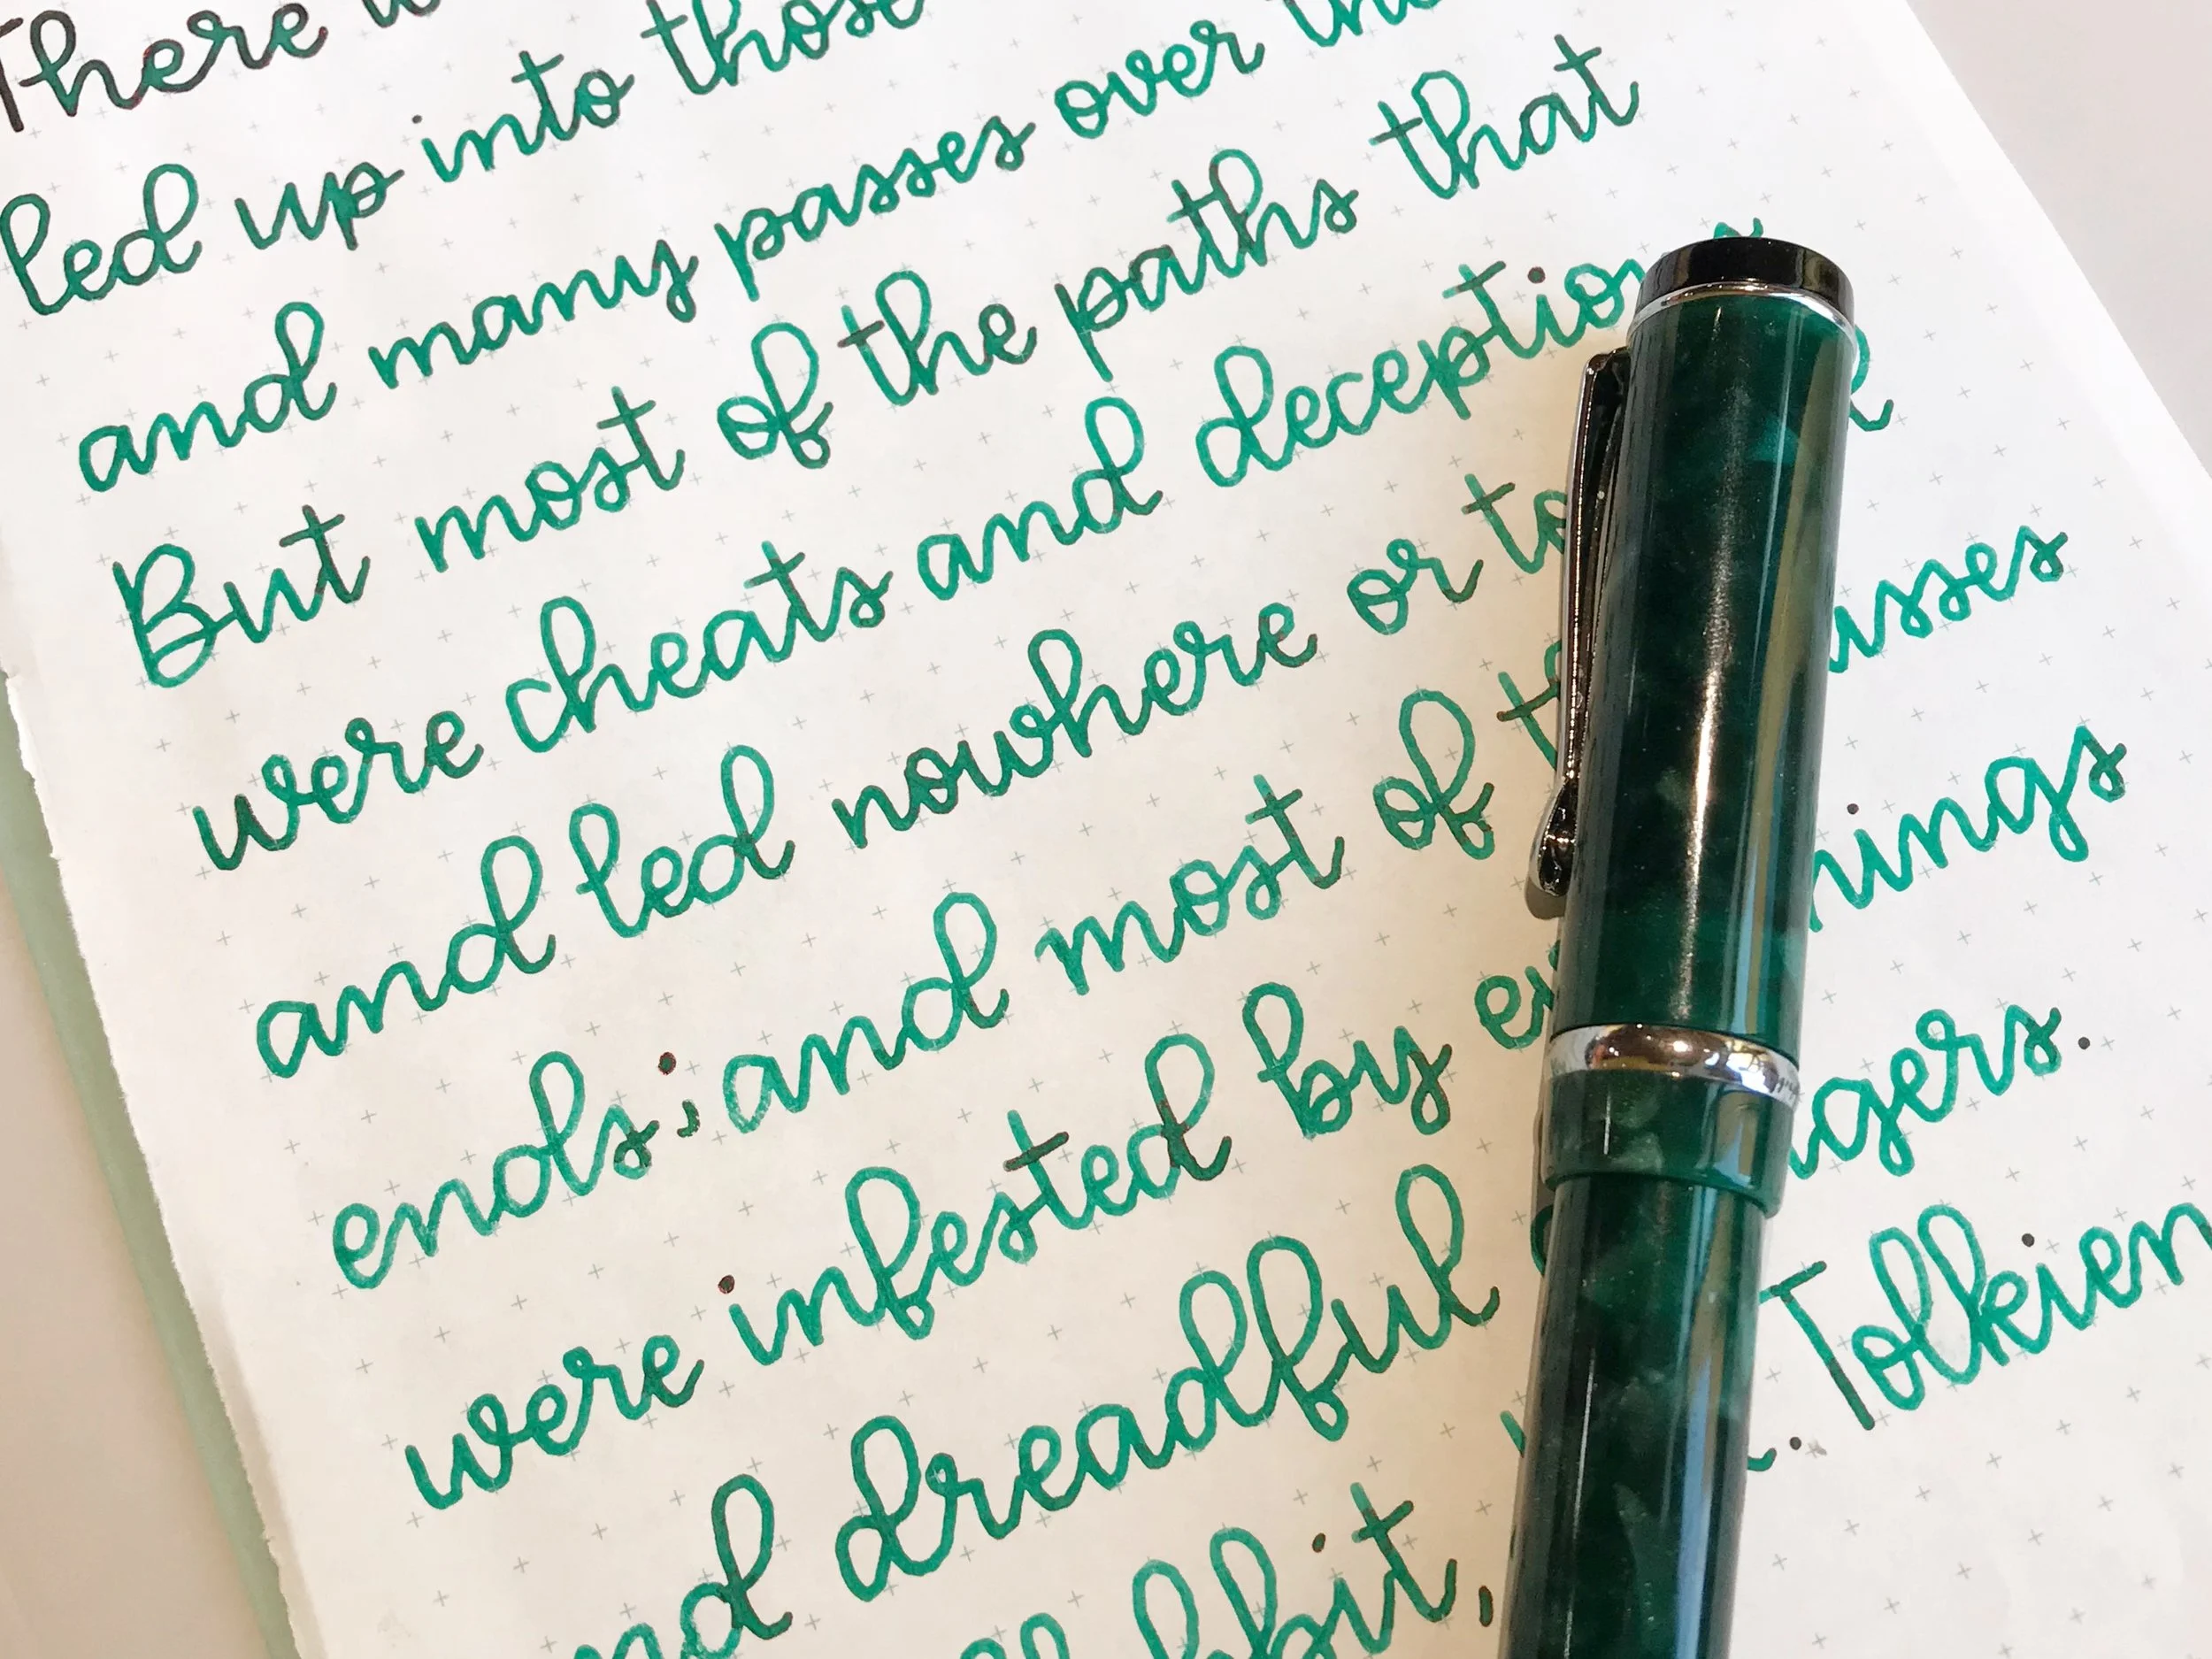 There
led up into those
and many passes over
But most of the paths that
were cheats and deceptions
and led nowhere or to
ends; and most of
were infested by
dreadful
Tolkien